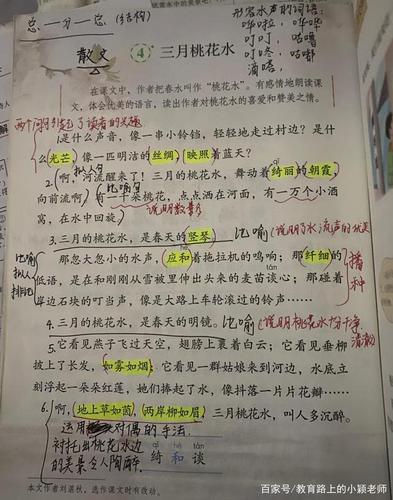 总一分一总(结构)
形容水声的词语:
哗啦, 哗哗
叮叮, 咕噜
叮咚, 咕嘟
滴嗒,
散文
4 三月桃花水
在课文中,作者把春水叫作“桃花水”。有感情地朗读课
文,体会优美的语言,读出作者对桃花水的喜爱和赞美之情。
两个问句引起了读者的兴趣
是什么声音,像一串小铃铛,轻轻地走过村边?是什
么光芒,像一匹明洁的丝绸,映照着蓝天?
拟人句
2.啊,河流醒来了!三月的桃花水,舞动着绮丽的朝霞,
qǐ
比喻句
向前流啊!有一千朵桃花,点点洒在河面,有一万个小酒
窝,在水中回旋。
说明数量多
3.三月的桃花水,是春天的竖琴。
比喻(说明了水流声的优美
比喻
拟人
排比句
那忽大忽小的水声,应和着拖拉机的鸣响;那纤细的
低语,是在和刚刚从雪被里伸出头来的麦苗谈心;那碰着
岸边石块的叮当声,像是大路上车轮滚过的铃声……
播
种
4.三月的桃花水,是春天的明镜。
比喻(说明桃花水十分干净
清澈
5.它看见燕子飞过天空,翅膀上裹着白云;它看见垂柳
披上了长发,如雾如烟;它看见一群姑娘来到河边,水底立
刻浮起一朵朵红莲,她们捧起了水,像抖落一片片花瓣……
6.啊,地上草如茵,两岸柳如眉,三月桃花水,叫人多沉醉。
运用 对偶的手法.
衬托出桃花水边
的美景令人陶醉.
qǐ hè tán
绮 和 谈
本文作者刘湛秋,选作课文时有改动。
百家号/教育路上的小颖老师